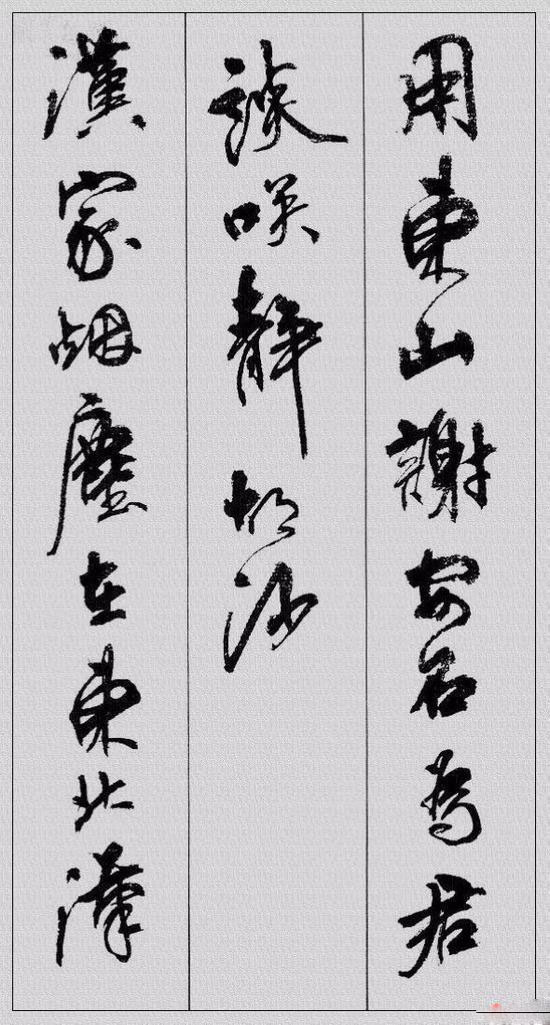 用東山謝安石為君
談咲静胡沙
漢家烟塵在東北漢